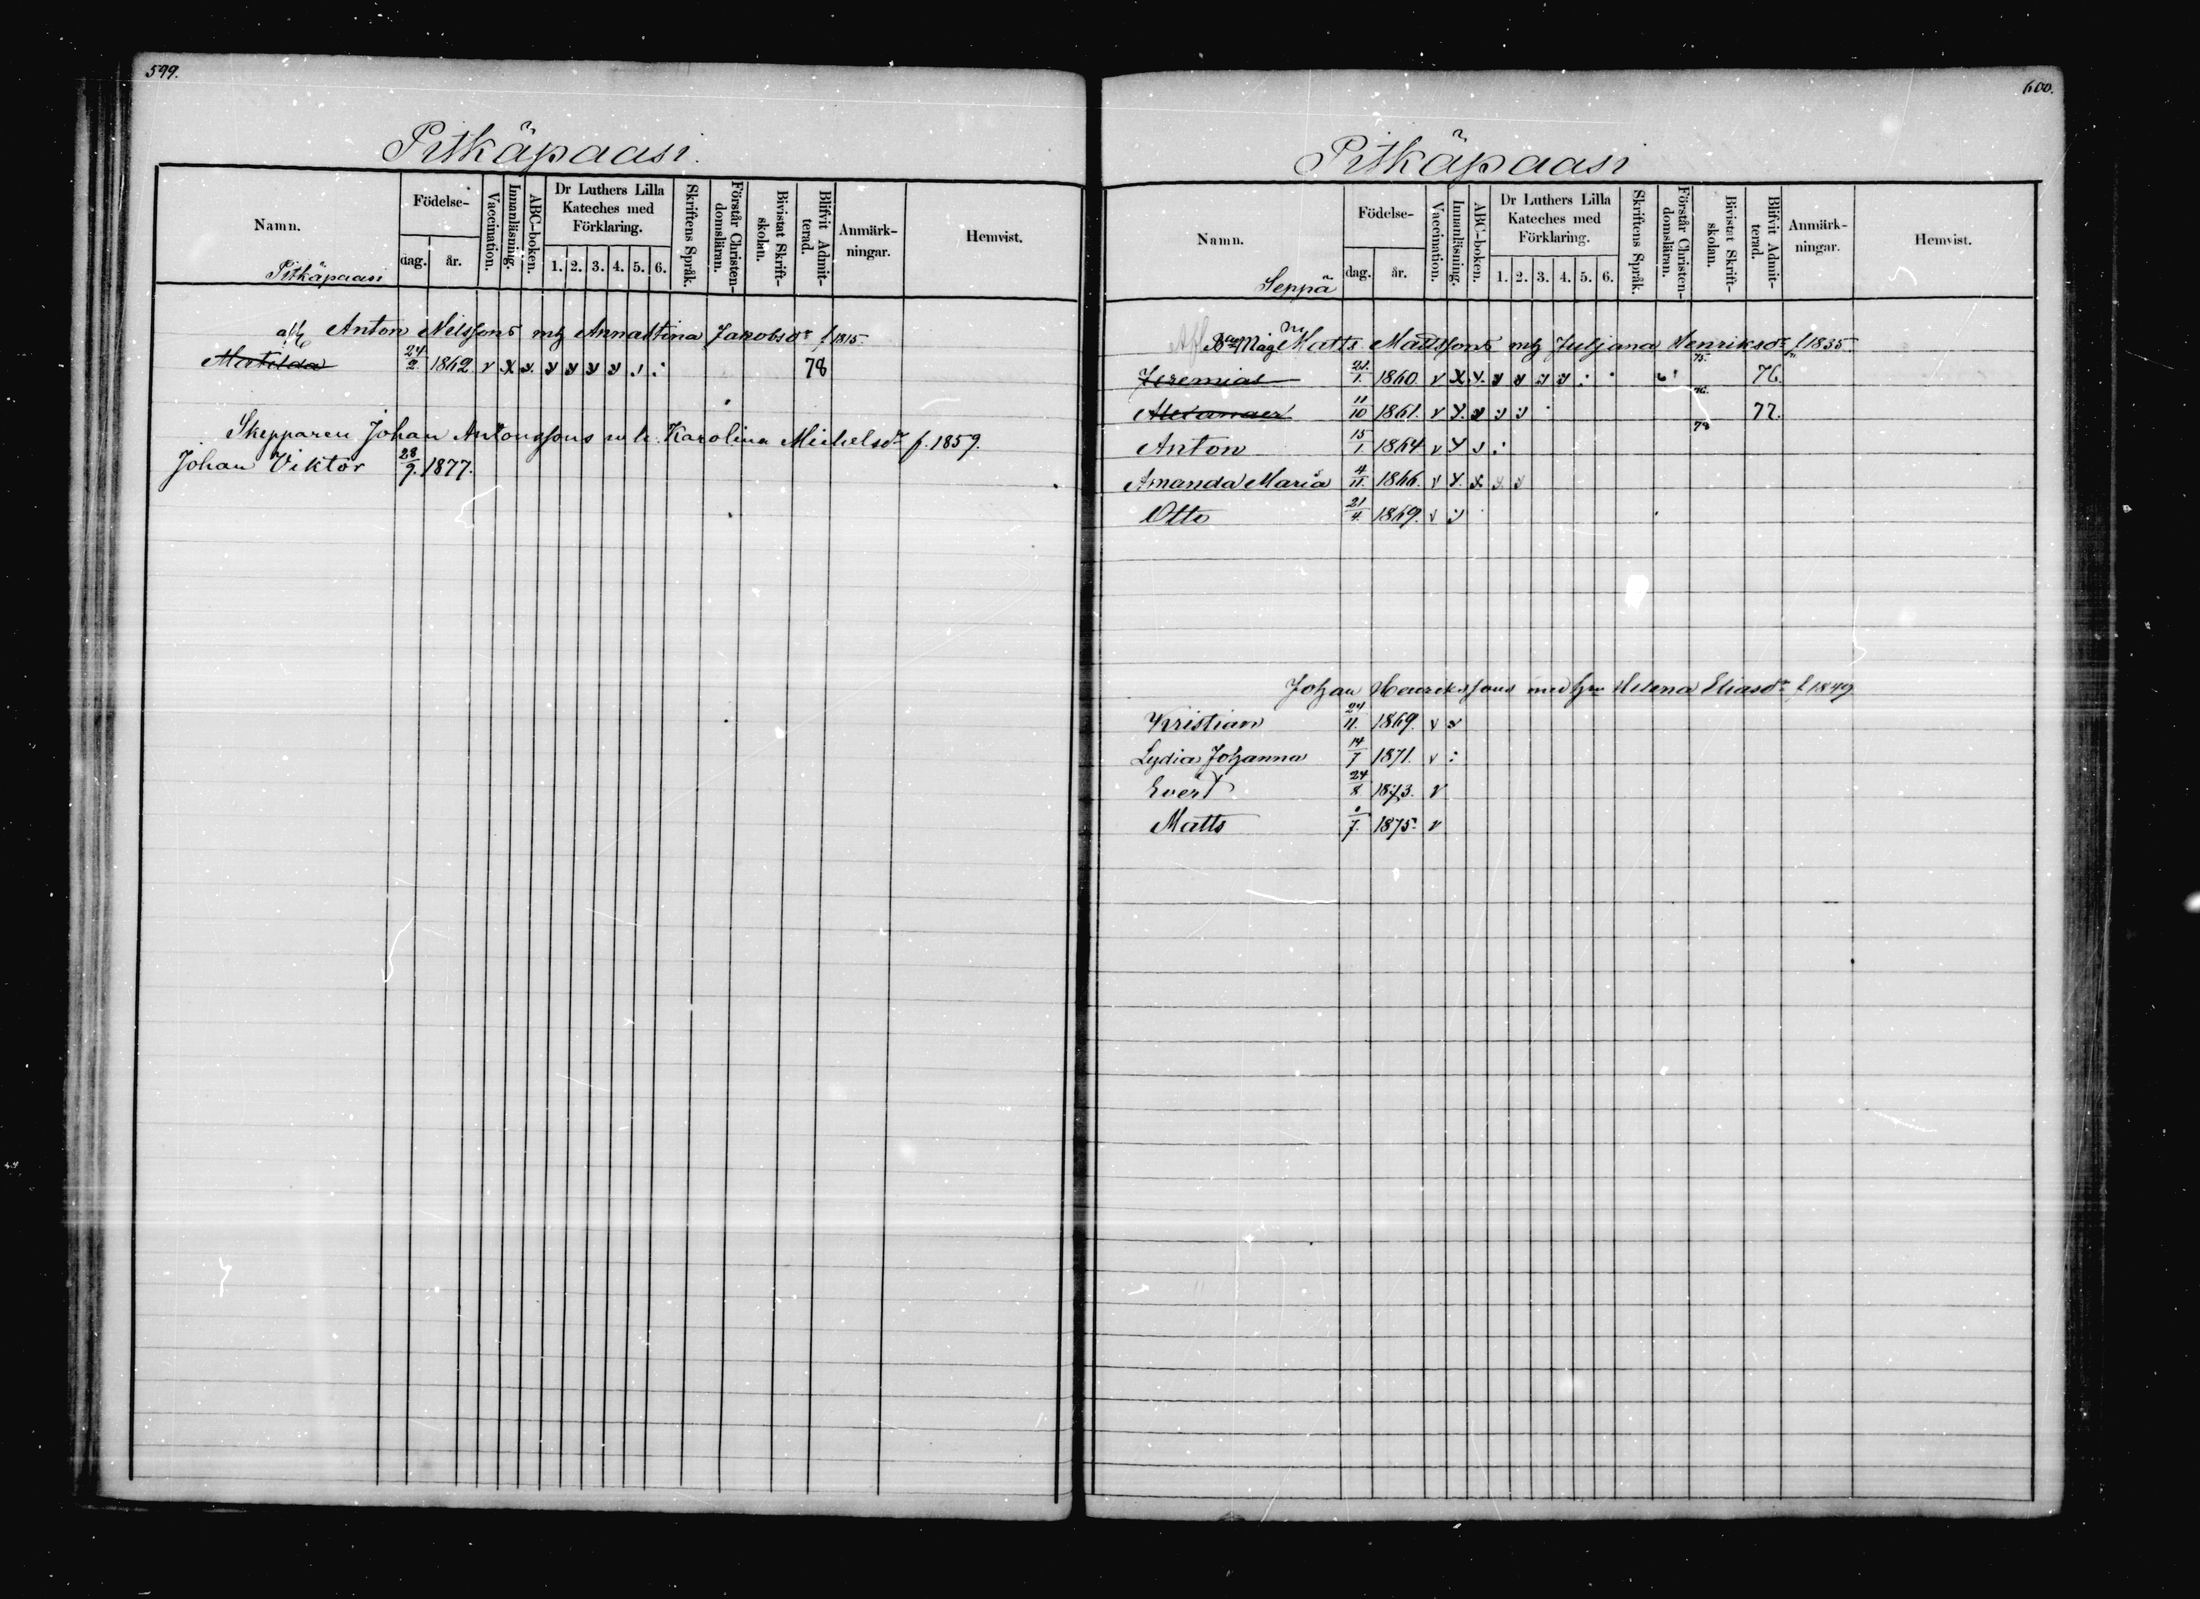 599.
Pitkäpaasi.
Namn.
Födelse-
dag.
år.
Vaccination.
Innanläsning.
ABC-boken.
Dr Luthers Lilla
Kateches med
Förklaring.
1. 2. 3. 4. 5. 6.
Skriftens Språk.
Förstår Christen-
domsläran.
Bivistat Skrift-
skolan.
Blifvit Admit-
terad.
Anmärk-
ningar.
Hemvist.
Pitkäpaasi
Anton Nilssons mh Annastina Jakobsdr f 1815.
Matilda 24/2 1862 v x y. y y y y 78
Skepparen Johan Antonssons m h. Karolina Michelsdr f. 1859.
Johan Viktor 28/9. 1877.
600.
Pitkäpaasi
Namn.
Födelse-
dag.
år.
Vaccination.
Innanläsning.
ABC-boken.
Dr Luthers Lilla
Kateches med
Förklaring.
1. 2. 3. 4. 5. 6.
Skriftens Språk.
Förstår Christen-
domsläran.
Bivistat Skrift-
skolan.
Blifvit Admit-
terad.
Anmärk-
ningar.
Hemvist.
Seppä
Matts Mattssons mh Juljana Henriksdr f 1835.
Jeremias 21/1. 1860 v x y. y y y y 75. 76.
Alexander 11/10 1861. v y. y y y 76. 77.
Anton 15/1. 1864 v y y : 78
Amanda Maria 4/11. 1866. v y. x y y
Otto 21/4. 1869. v y
Johan Henrikssons med hu Helena Eliasdr f 1849
Kristian 24/11. 1869. v y
Lydia Johanna 14/7 1871. v :
Evert 24/8 1873. v
Matts /7. 1875. v